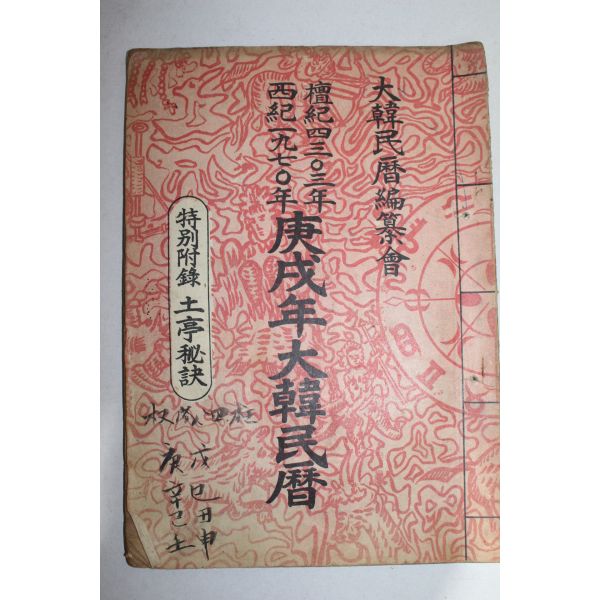 大韓民曆編纂會
檀紀四三〇三年
西紀一九七〇年
庚戌年大韓民曆
特別附錄 土亭秘訣
四柱
戊巳丑申
庚辛己土